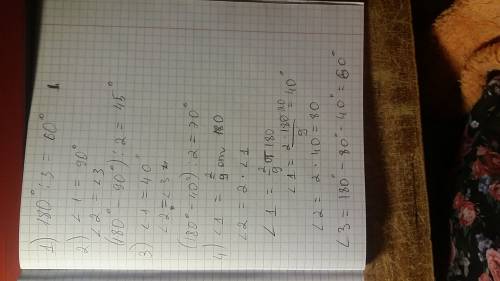 1) 180° : 3 = 60°
2) ∠1 = 90°
∠2 = ∠3
(180° - 90°) : 2 = 45°
3) ∠1 = 40°
∠2 = ∠3
(180° - 40°) : 2 = 70°
4) ∠1 = 2/9 от 180
∠2 = 2 · ∠1
∠1 = 2/9 от 180
∠1 = 2 · 180 / 9 = 40°
∠2 = 2 · 40 = 80
∠3 = 180° - 80° - 40° = 60°